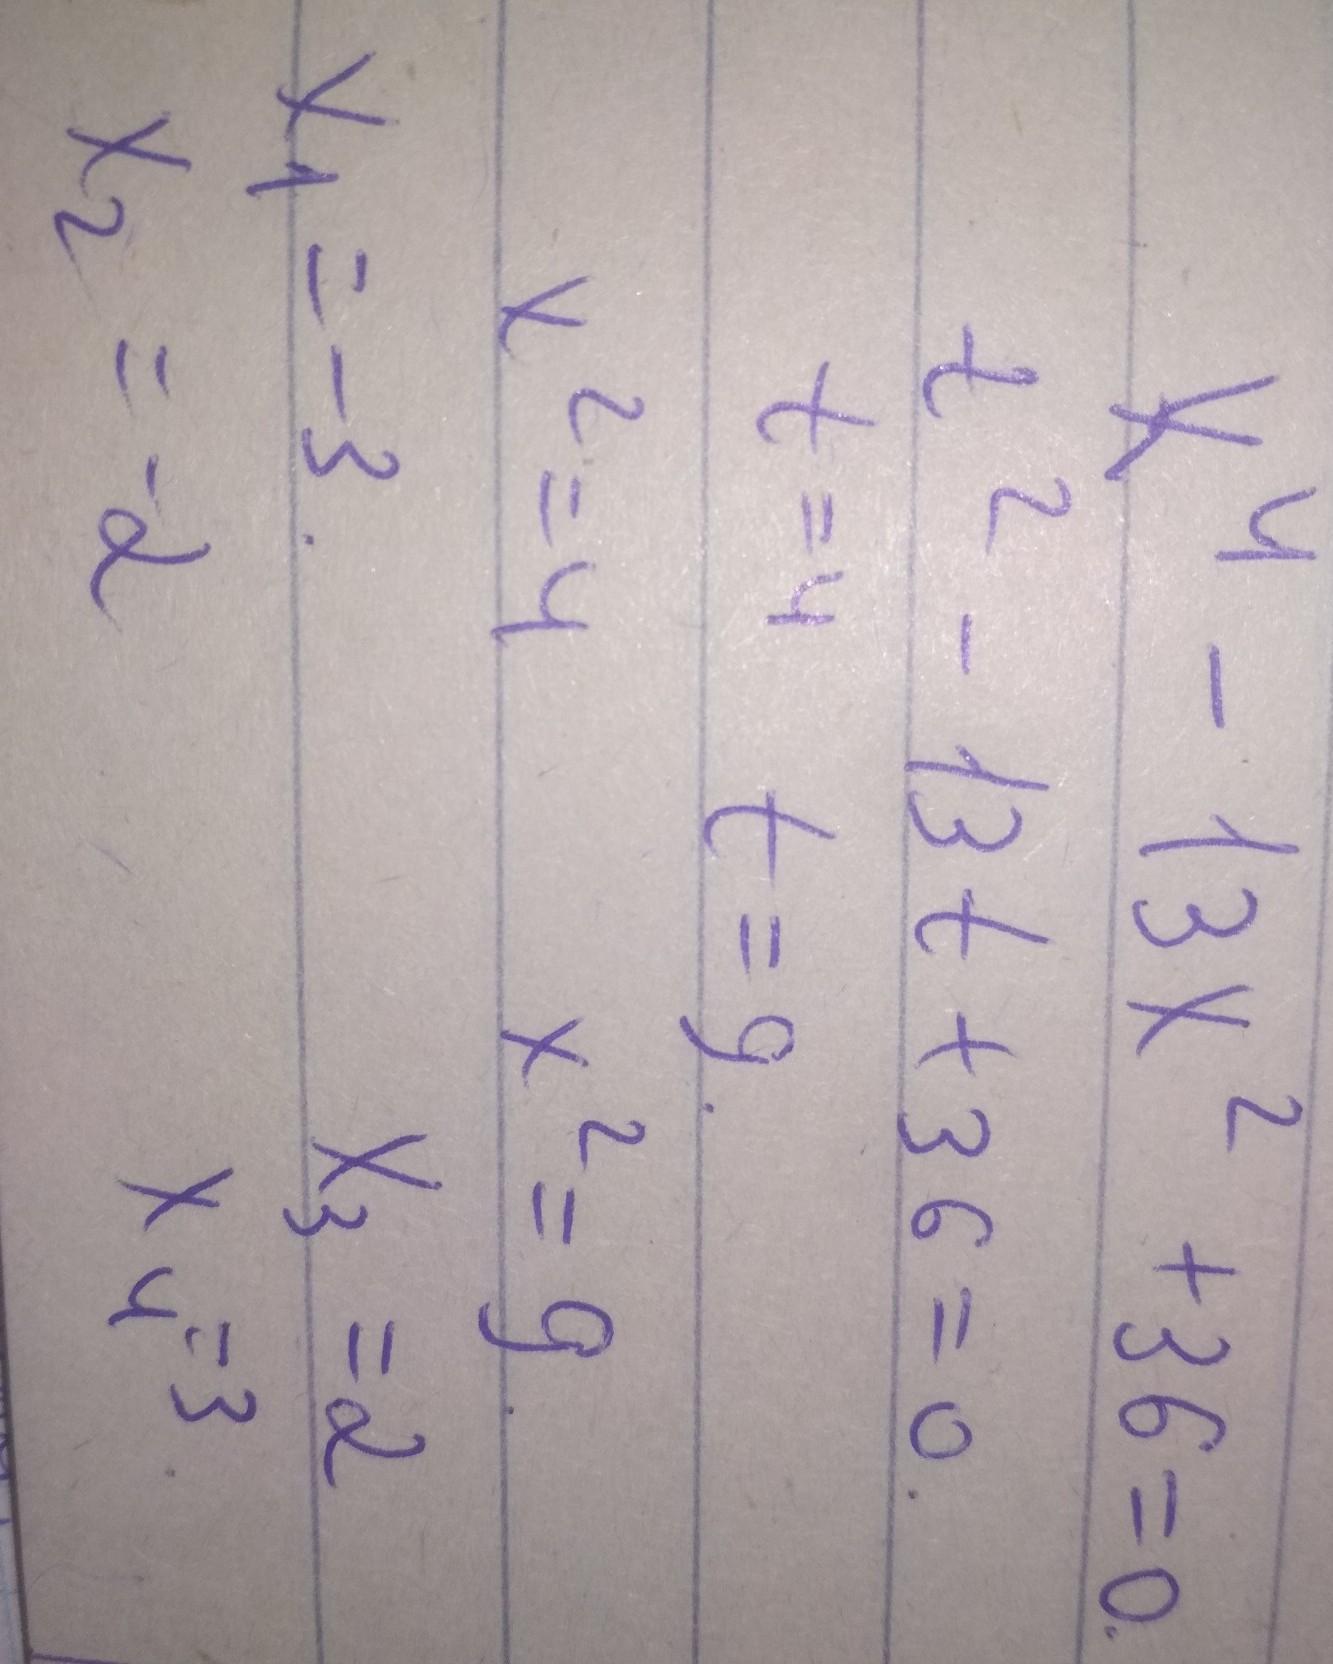 x⁴ - 13x² + 36 = 0.
t² - 13t + 36 = 0.
t = 4 t = 9.
x² = 4 x² = 9.
x₁ = -3. x₃ = 2
x₂ = -2 x₄ = 3.